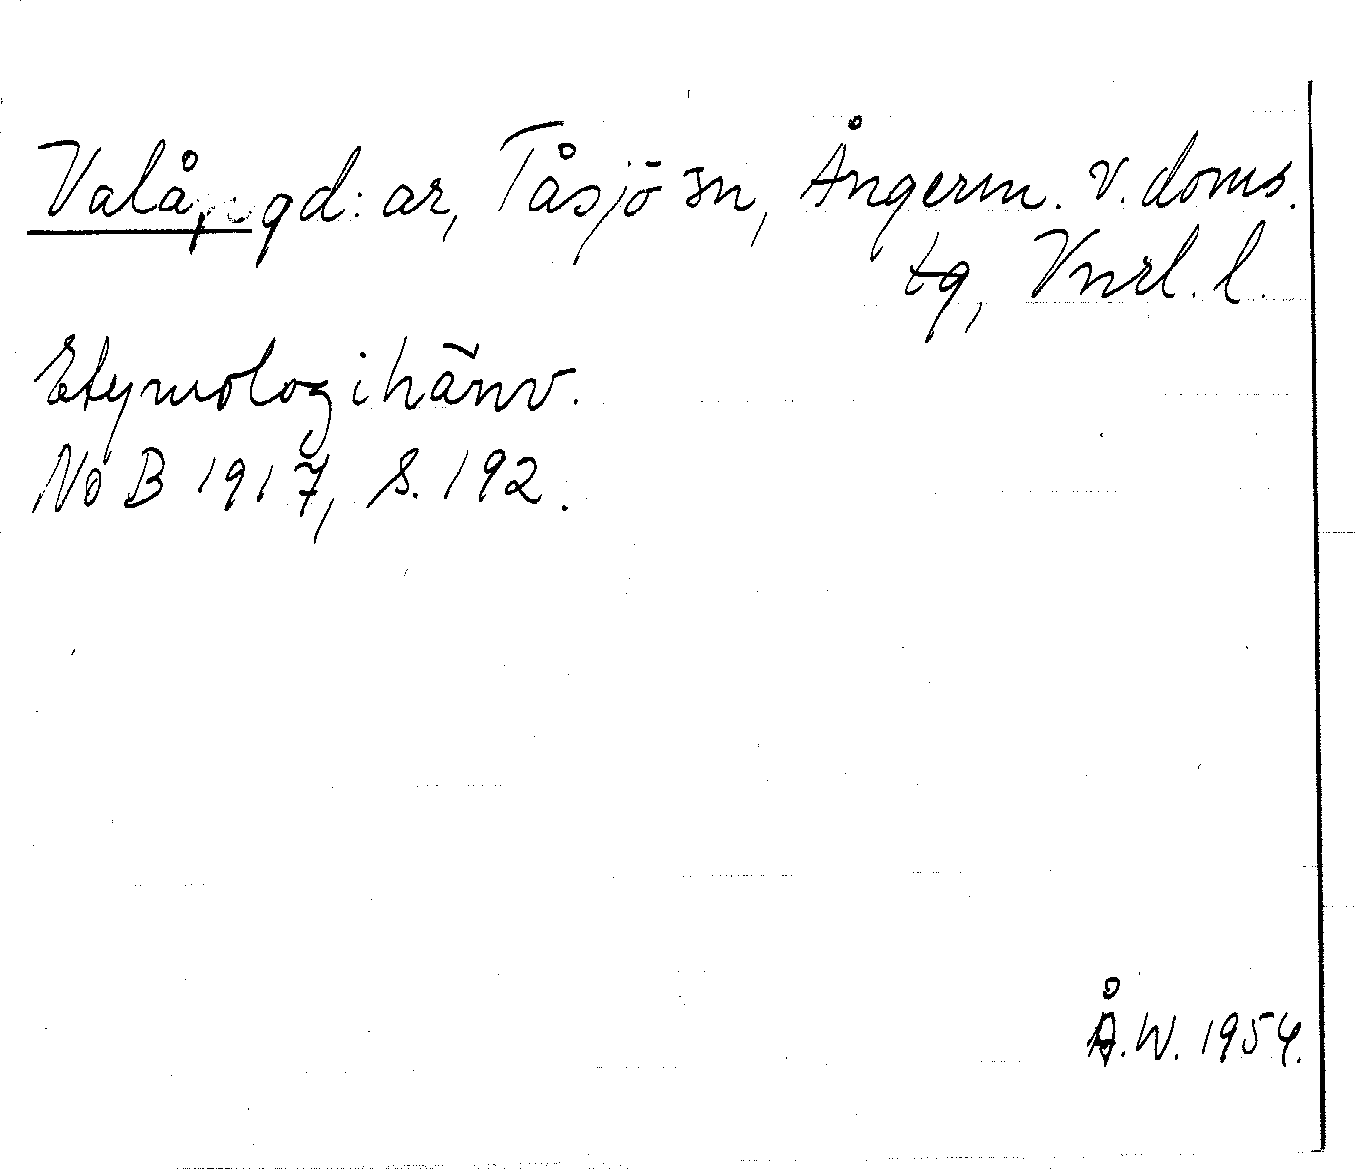 Valå, gd:ar, Tåsjö sn, Ångerm. v. doms.
tg, Vnrl. l.
Etymologihänv.
NoB 1917, s. 192.
Å.W. 1954.